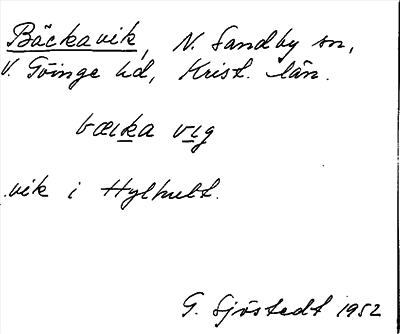 Bäckavik, N. Sandby sn,
V. Göinge hd, Krist. län.
bæɩka vɩg
vik i Hylhult.
G. Sjöstedt 1952